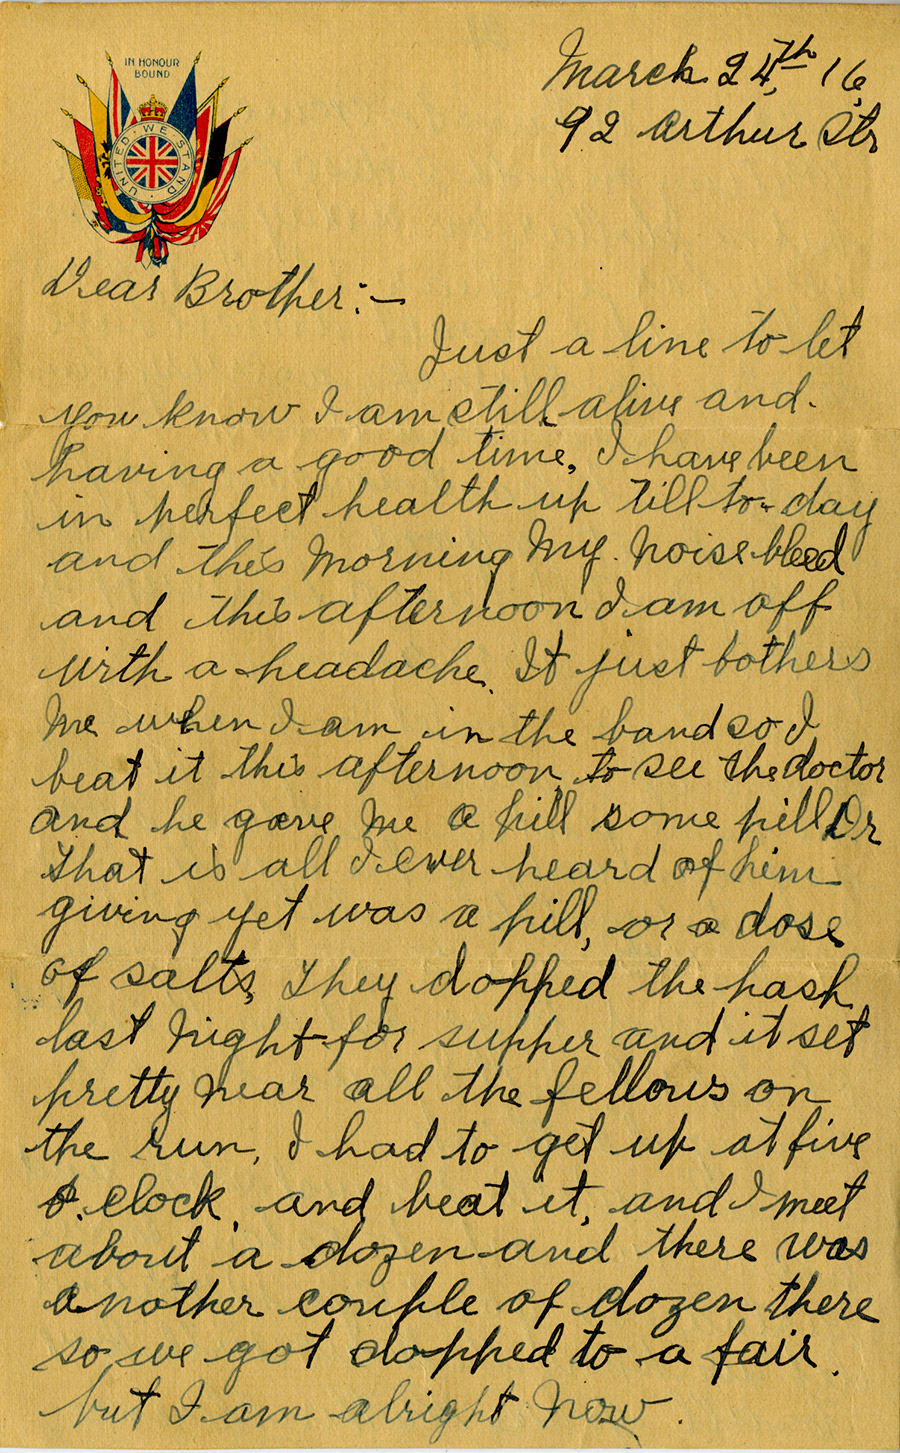 IN HONOUR
BOUND
UNITED·WE·STAND
March 24th, 16,
92 Arthur Str
Dear Brother:—
Just a line to let
you know I am still alive and.
having a good time, I have been
in perfect health up till to-day
and this Morning My. Noise bleed
and this afternoon I am off
with a headache. It just bothers
Me when I am in the band so I
beat it this afternoon to see the doctor
and he gave Me a pill some pill Dr
That is all I ever heard of him
giving yet was a pill, or a dose
of salts, They dopped the hash
last Night for supper and it set
pretty Near all the fellows on
the run, I had to get up at five
o. clock, and beat it, and I meet
about a dozen and there was
another couple of dozen there
so we got dopped to a fair.
but I am alright Now.